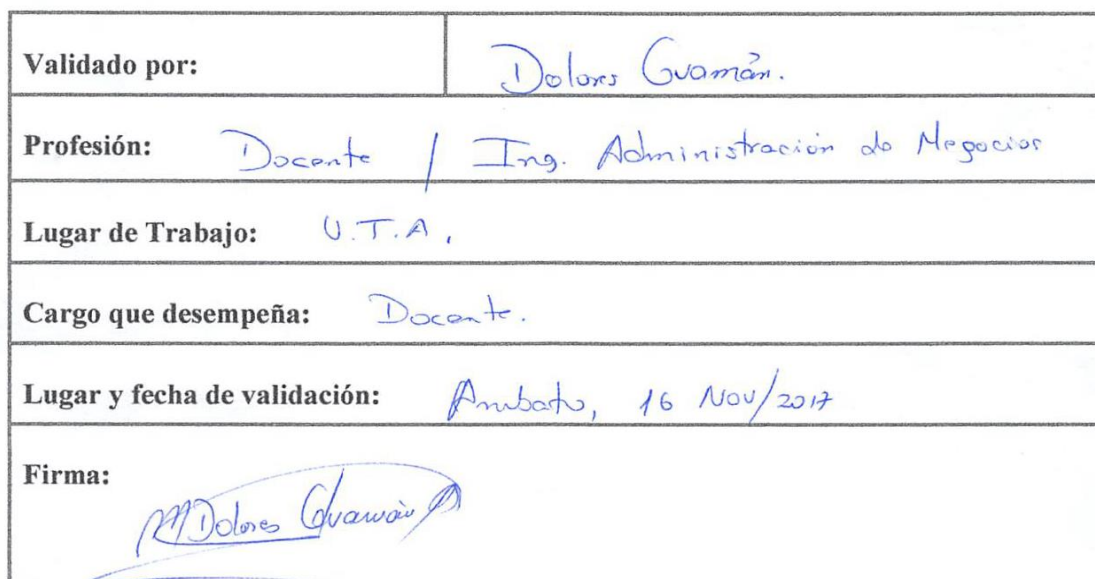 Validado por: Dolores Guamán.
Profesión: Docente / Ing. Administración de Negocios
Lugar de Trabajo: U.T.A.
Cargo que desempeña: Docente.
Lugar y fecha de validación: Ambato, 16 Nov/2017
Firma:
Dolores Guamán